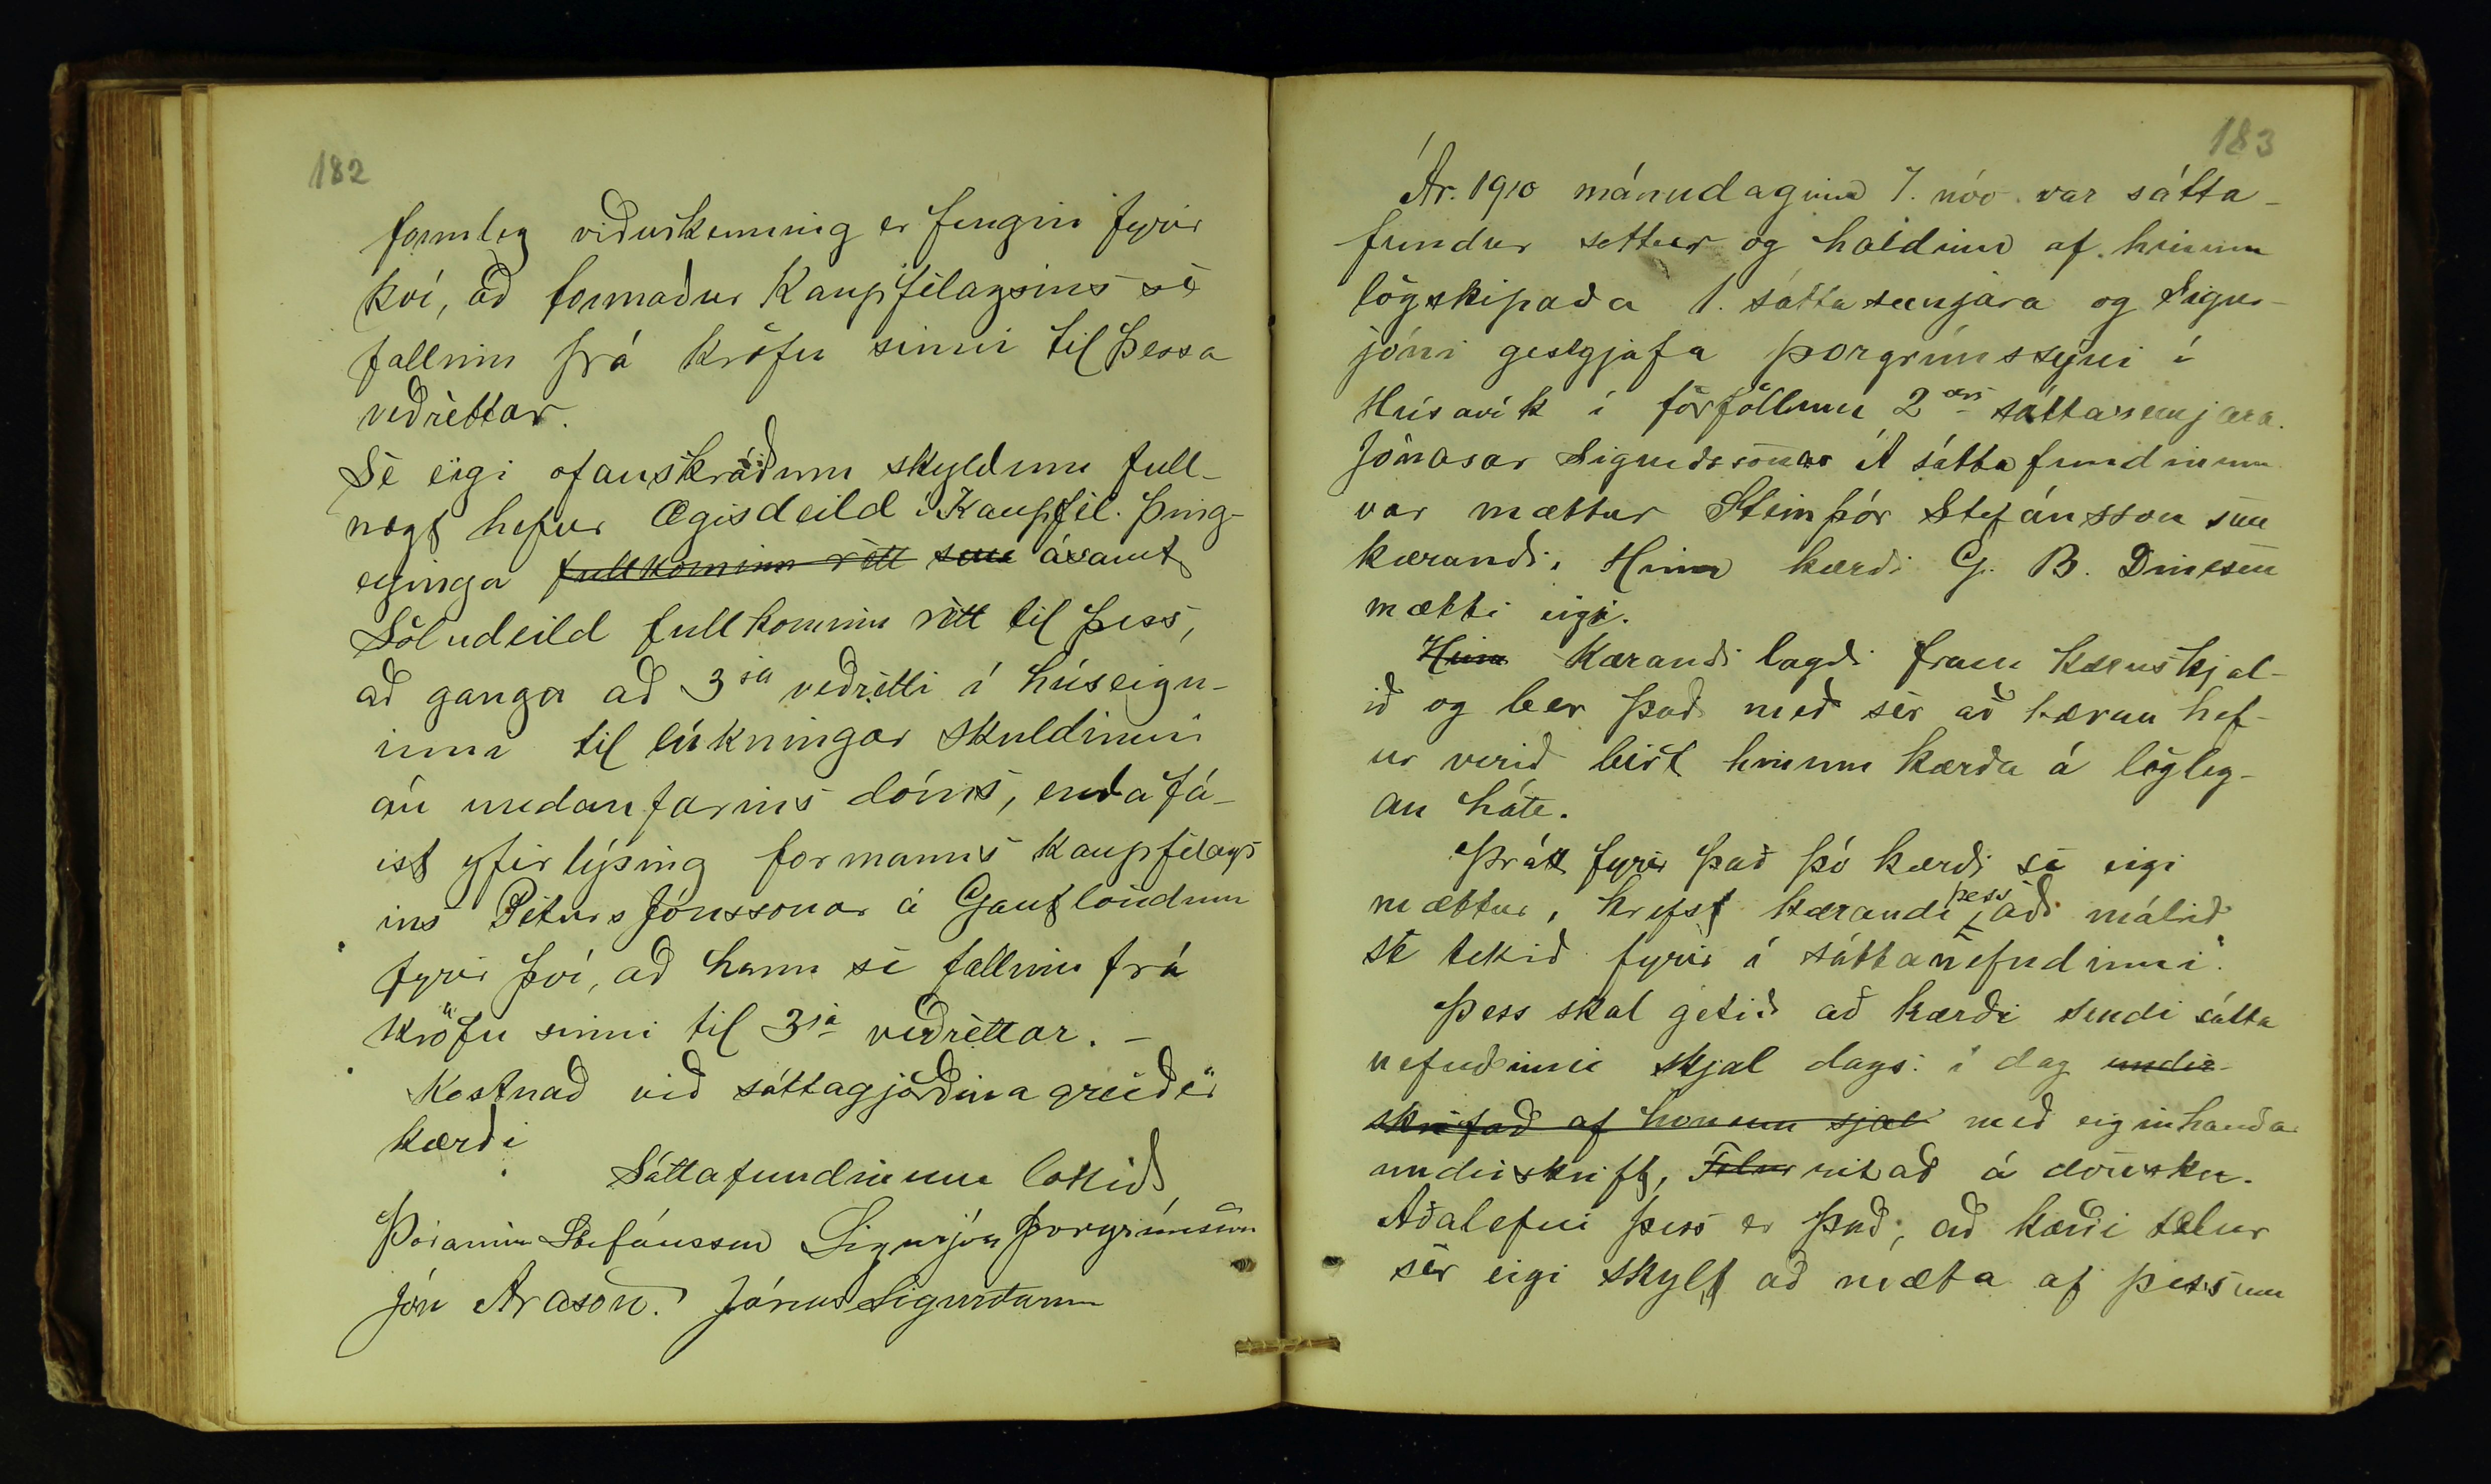 182
formleg viðurkenning er fengin fyrir
því, að formaður Kaupfélagsins sé
fallinn frá kröfu sinni til þessa
veðréttar.
Sé eigi ofanskráðum skyldum full-
nægt hefur Ægisdeild í Kaupfél. Þing-
eyinga fullkominn rétt sem ásamt
Söludeild fullkominn rétt til þess,
að ganga að 3ja veðrétti í húseign-
inni til lúkningar skuldinni
án undanfarins dóms, enda fá-
ist yfirlýsing formanns kaupfélags
ins Péturs Jónssonar á Gautlöndum
fyrir því, að hann sé fallinn frá
kröfu sinni til 3ja veðréttar. -
Kostnað við sáttagjörðina greiðir
kærði
Sáttafundinum lokið
Þórarinn Stefánsson Sigurjón Þorgrímsson
Jón Arason. Jónas Sigurðsson
183
Ár. 1910 mánudaginn 7. nóv. var sátta-
fundur settur og haldinn af hinum
lögskipaða 1. sáttasemjara og Sigur-
jóni gestgjafa Þorgrímssyni í
Húsavík í forföllum 2ars sáttasemjara.
Jónasar Sigurðssonar Á sáttafundinum
var mættur Steinþór Stefánsson sem
kærandi. Hinn kærði G. B. Dinesen
mætti eigi.
Hinn Kærandi lagði fram kæruskjal-
ið og ber það með sér að kæran hef-
ur verið birt hinum kærða á lögleg-
an hátt.
Þrátt fyrir það þó kærði sé eigi
mættur, krefst kærandi þess, að málið
sé tekið fyrir í sáttanefndinni.
Þess skal getið að kærði sendi sátta
nefndinni skjal dags: í dag undir-
skrifað af honum sjál með eiginhanda
undirskrift, ritað á dönsku.
Aðalefni þess er það, að kærði telur
sér eigi skylt að mæta af þessum